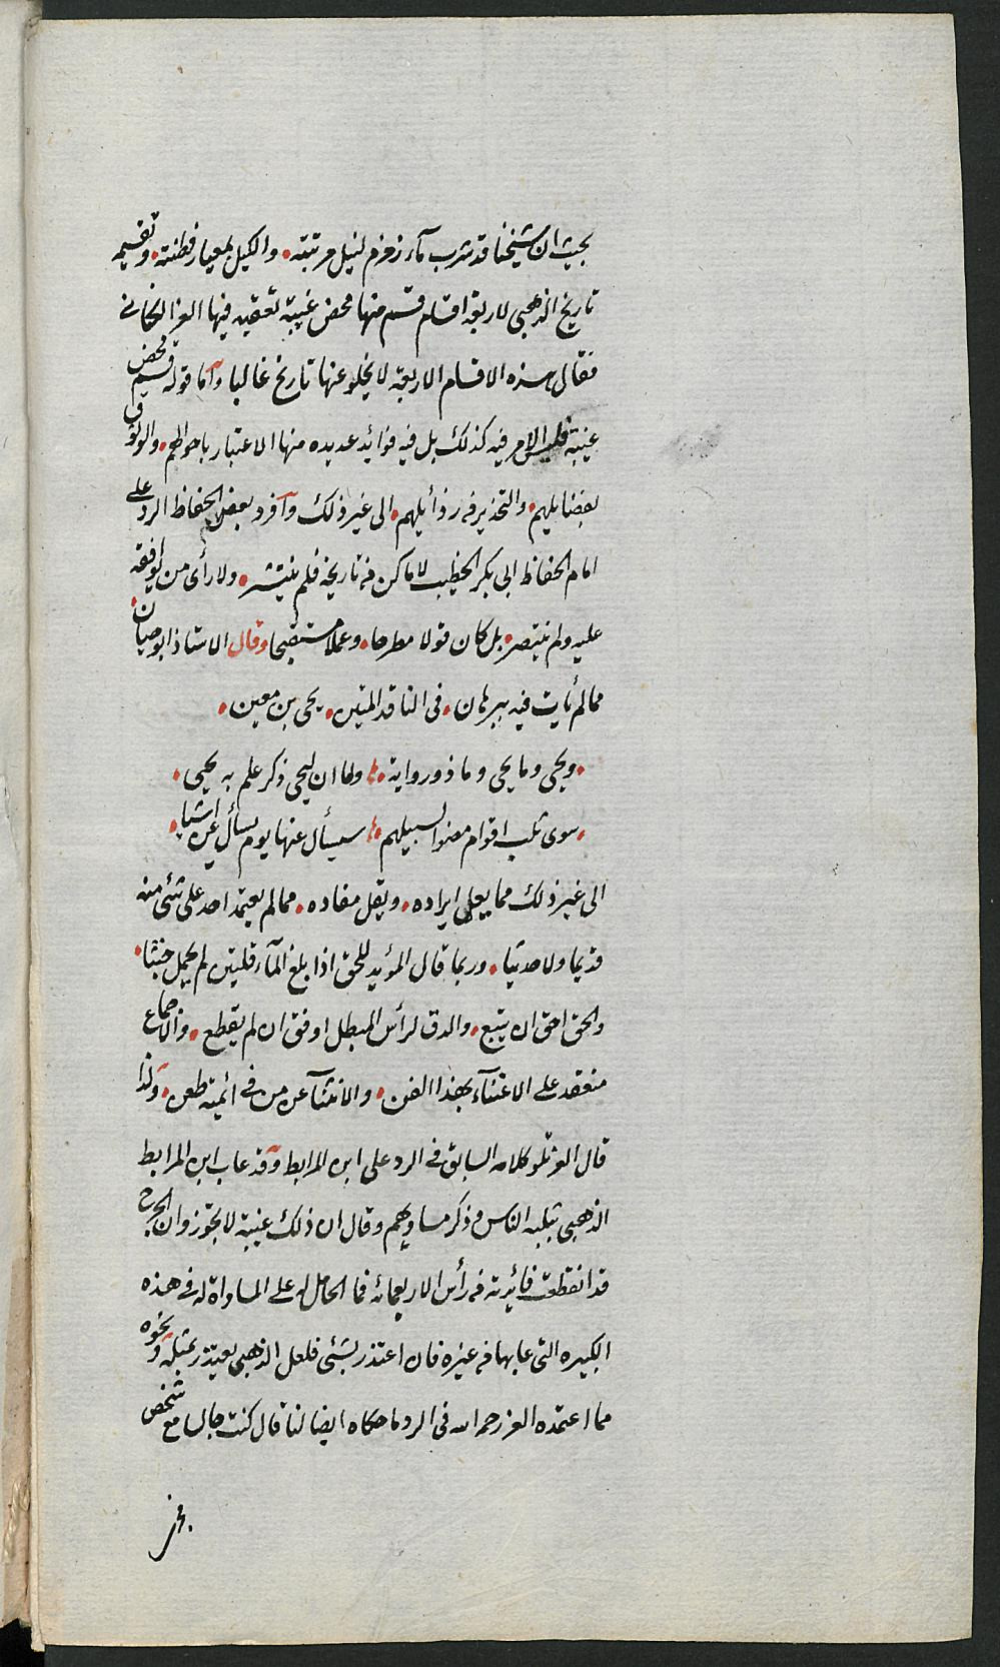 بحيث ان شيخنا قد شرب مآء زمزم لنيل مرتبته، والكيل بمعيار فطنته، وتقسيمه
تاريخ الذهبي لاربعة اقسام قسم منها محض غيبة تعقبه فيها العز الكناني
فقال هذه الاقسام الاربعة لا يخلو عنها تاريخ غالبا وآما قوله قسم محض
غيبة فليس الامر فيه كذلك بل فيه فوائد عديده منها الاعتبار باحوالهم، والوثوق
بفضايلهم، والتحذير من رذآئلهم، الى غير ذلك وآفرد بعض الحفاظ الرد على
امام الحفاظ ابي بكر الخطيب لاماكن من تاريخه فلم ينتشر، ولا رأى من يوافقه
عليه ولم ينتصر، بل كان قولا مطرحا، وعملا مستقبحا وقال الاستاذ ابو حيان،
مما لم يأت فيه ببرهان، في الناقد المتين، يحي بن معين،
، ويحي وما يحي وما ذو رواية، وما ان ليحي ذكر علم به يحيى،
، سوى ثلب اقوام مضوا لسبيلهم، سيسأل عنها يوم يسأل عن اشيا،
الى غير ذلك مما يعلى ايراده، ويقل مفاده، مما لم يعتمد احد على شئ منه
قديما ولا حديثا، وربما قال المؤيد للحق اذا بلغ المآء قلتين لم يحمل خبثا،
والحق احق ان يتبع، والدق لرأس المبطل اوفق ان لم يقطع، والاجماع
منعقد على الاعتنآء بهذا الفن، والانثنآ عن من في ائمته طعن، ولذا
قال العز تلو كلامه السابق في الرد على ابن المرابط وقد عاب ابن المرابط
الذهبي بثلبه الناس وذكر مساويهم وقال ان ذلك غيبة لا تجوز وان الجرح
قد انقطعت فائدته من رأس الاربعمائة فما الحامل له على المساواة له في هذه
الكبيره التي عابها من غيره فان اعتذر بشئي فلعل الذهبي يعتذر بمثله ونحوه
مما اعتمده العز رحمه الله في الرد ما حكاه ايضا لنا قال كنت جالسا مع شخص